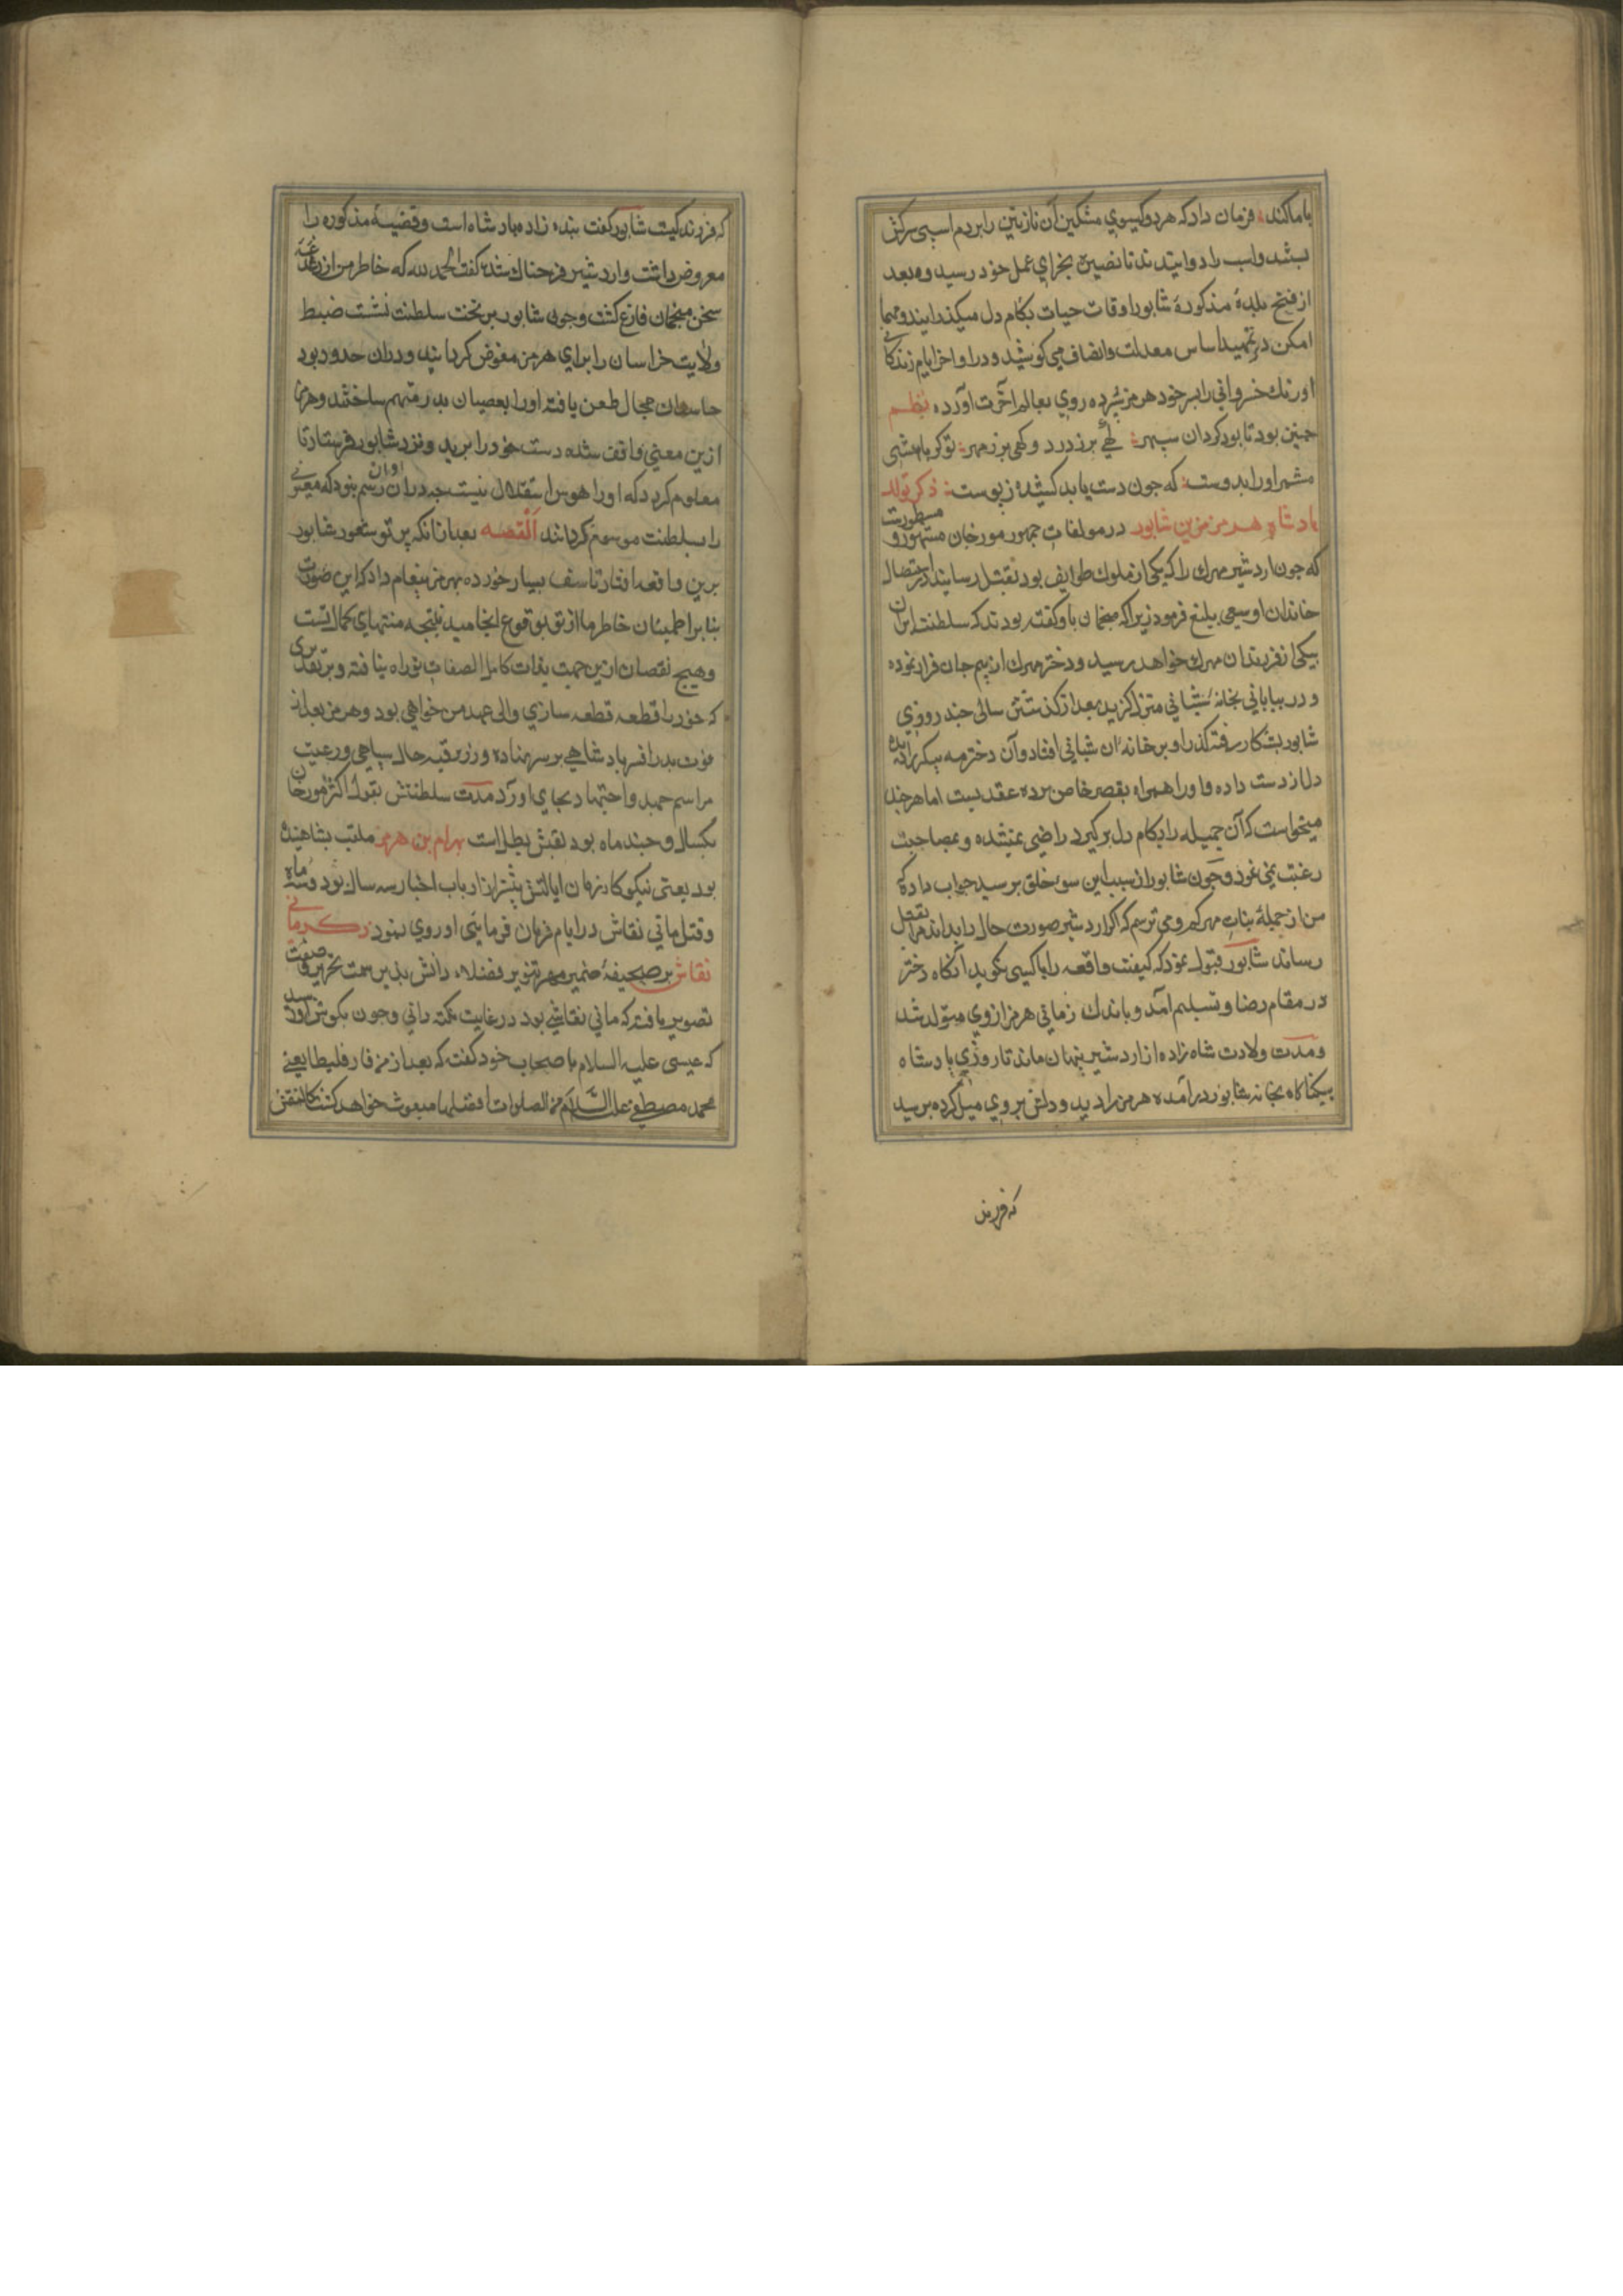 با ما کند فرمان داد که هر دو کیسوی مشکین آن نازنین را بر دم اسبی سرکش
بستند و اسب را دوانیدند تا نضیره بجزای عمل خود رسید و بعد
از فتح بلدهٔ مذکوره شابور اوقات حیات بکام دل میکذرانید و مهما
امکن در تمهید اساس معدلت و انصاف می کوشید و در اواخر ایام زندکانی
اورنک خسروانی را بپسر خود هرمز سپرده روی بعالم آخرت آورده نظم
جنین بود تا بود کردان سپهر کهی پر ز درد و کهی پر ز مهر تو کر باهشی
مشمر او را بدوست که جون دست یابد کشیدت ز پوست ذکر تولد
بادشاه هرمز بن شابور در مولفات جمهور مورخان مشهور و مسطورست
که جون اردشیر مهرک را که یکی از ملوک طوایف بود بقتل رسانید در استیصال
خاندان او سعی بلیغ فرمود زیرا که منجمان با او کفته بودند که سلطنت ایران
بیکی از فرزندان مهرک خواهد رسید و دختر مهرک از بیم جان فرار نموده
و در بیابانی بخانهٔ شبانی منزل کزید بعد از کذشتن سالی جند روزی
شابور بشکار رفته کذر او بر خانهٔ آن شبانی افتاد و آن دختر مه پیکر را دیده
دل از دست داده و او را همراه بقصر خاص برده عقد بست اما هر جند
میخواست که آن جمیله را بکام دل بر کیرد راضی نمیشده و بمصاحبت
رغبت نمی نمود و جون شابور از سبب این سوء خلق پرسید جواب داد که
من از جملهٔ بنات مهرکم و می ترسم که اکر اردشیر صورت حال را بداند مرا بقتل
رساند شابور قبول نمود که کیفیت واقعه را با کسی نکوید آنکاه دختر
در مقام رضا و تسلیم آمد و باندک زمانی هرمز از وی متولد شد
و مدت ولادت شاه زاده از اردشیر پنهان ماند تا روزی بادشاه
بیکناکاه بخانه شابور درآمده هرمز را دید و دلش بر وی میل کرده پرسید
که فرزند
که فرزند کیست شابور کفت بنده زاده بادشاه است و قضیهٔ مذکوره را
معروض داشت و اردشیر فرحناک شده کفت الحمد لله که خاطر من از دغدغه
سخن منجمان فارغ کشت و جون شابور بر تخت سلطنت نشست ضبط
ولایت خراسان را برای هرمز مفوض کردانید و در آن حدود بود
حاسدان مجال طعن یافته او را بعصیان بدر متهم ساختند و هرمز
ازین معنی واقف شده دست خود را برید و نزد شابور فرستاد تا
معلوم کردد که او را هوس استقلال نیست جه در آن اوان رسم نبود که معیوبی
را بسلطنت موسوم کردانند القصه بعد از آنکه پرتو شعور شابور
برین واقعه افتاد تاسف بسیار خورده بهرمز پیغام داد که این صورت
بنا بر اطمینان خاطر ما از تو بوقوع انجامید نتیجه منتهای کمال تست
و هیج نقصان ازین جهت بذات کامل الصفات تو راه نیافته و بر تقدیری
که خود را قطعه قطعه سازی والی عهد من خواهی بود و هرمز بعد از
فوت بدر افسر بادشاهی بر سر نهاده و در ترفیه حال سپاهی و رعیت
مراسم جهد و اجتهاد بجای آورد مدت سلطنتش بقول اکثر مورخان
یکسال و جند ماه بود لقبش بطل است بهرام بن هرمز ملقب بشاهنده
بود یعنی نیکوکار زمان ایالتش نزد ارباب اخبار سه سال بود و سه ماه
و قتل مانی نقاش در ایام فرمان فرمایی او روی نمود ذکر مانی
نقاش بر صحیفهٔ ضمیر مهر تنویر فضلاء دانش پذیر سمت تحریر و صفت
تصویر یافته که مانی نقاشی بود در غایت نکته دانی و جون بکوش او رسید
که عیسی علیه السلام با اصحاب خود کفته که بعد از من فارقلیطا یعنی
محمد مصطفی علیه السلام من الصلوات افضلها مبعوث خواهد کشت